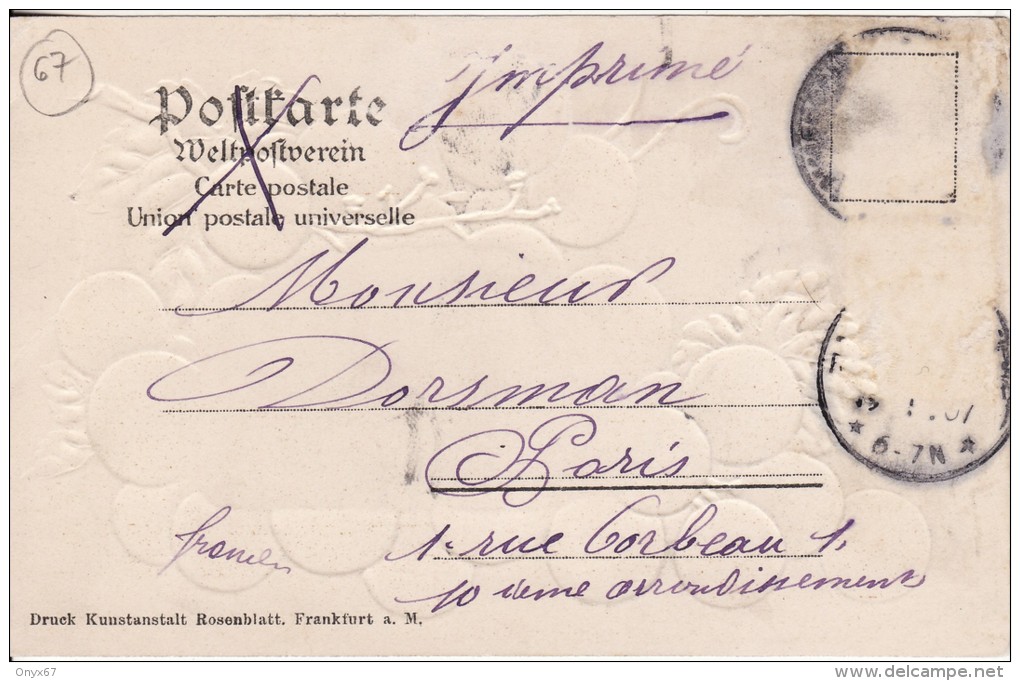 67
Imprimé
Postkarte
Weltpostverein
Carte postale
Union postale universelle
Monsieur
Dorsman
Paris
1. rue Corbeau 1.
10 ième arrondissement
Druck Kunstanstalt Rosenblatt. Frankfurt a. M.
* 6-7N *
Onyx67
delcampe.net